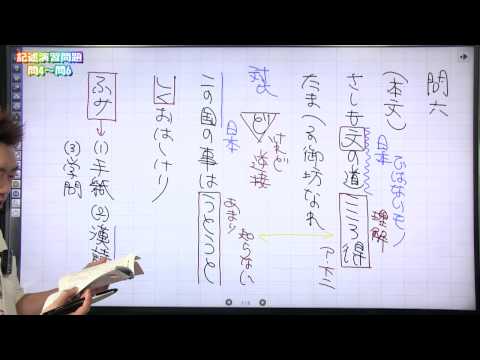 記述演習問題
問4～問6
問六
(本文)
日本
さしも文の道こころ得
理解
たまへる御坊なれ
ど
けれど
逆接
この国の事はうとうと
日本
あまり
知らない
しくおはしけり
ふみ→(1)手紙 (2)漢詩
(3)学問